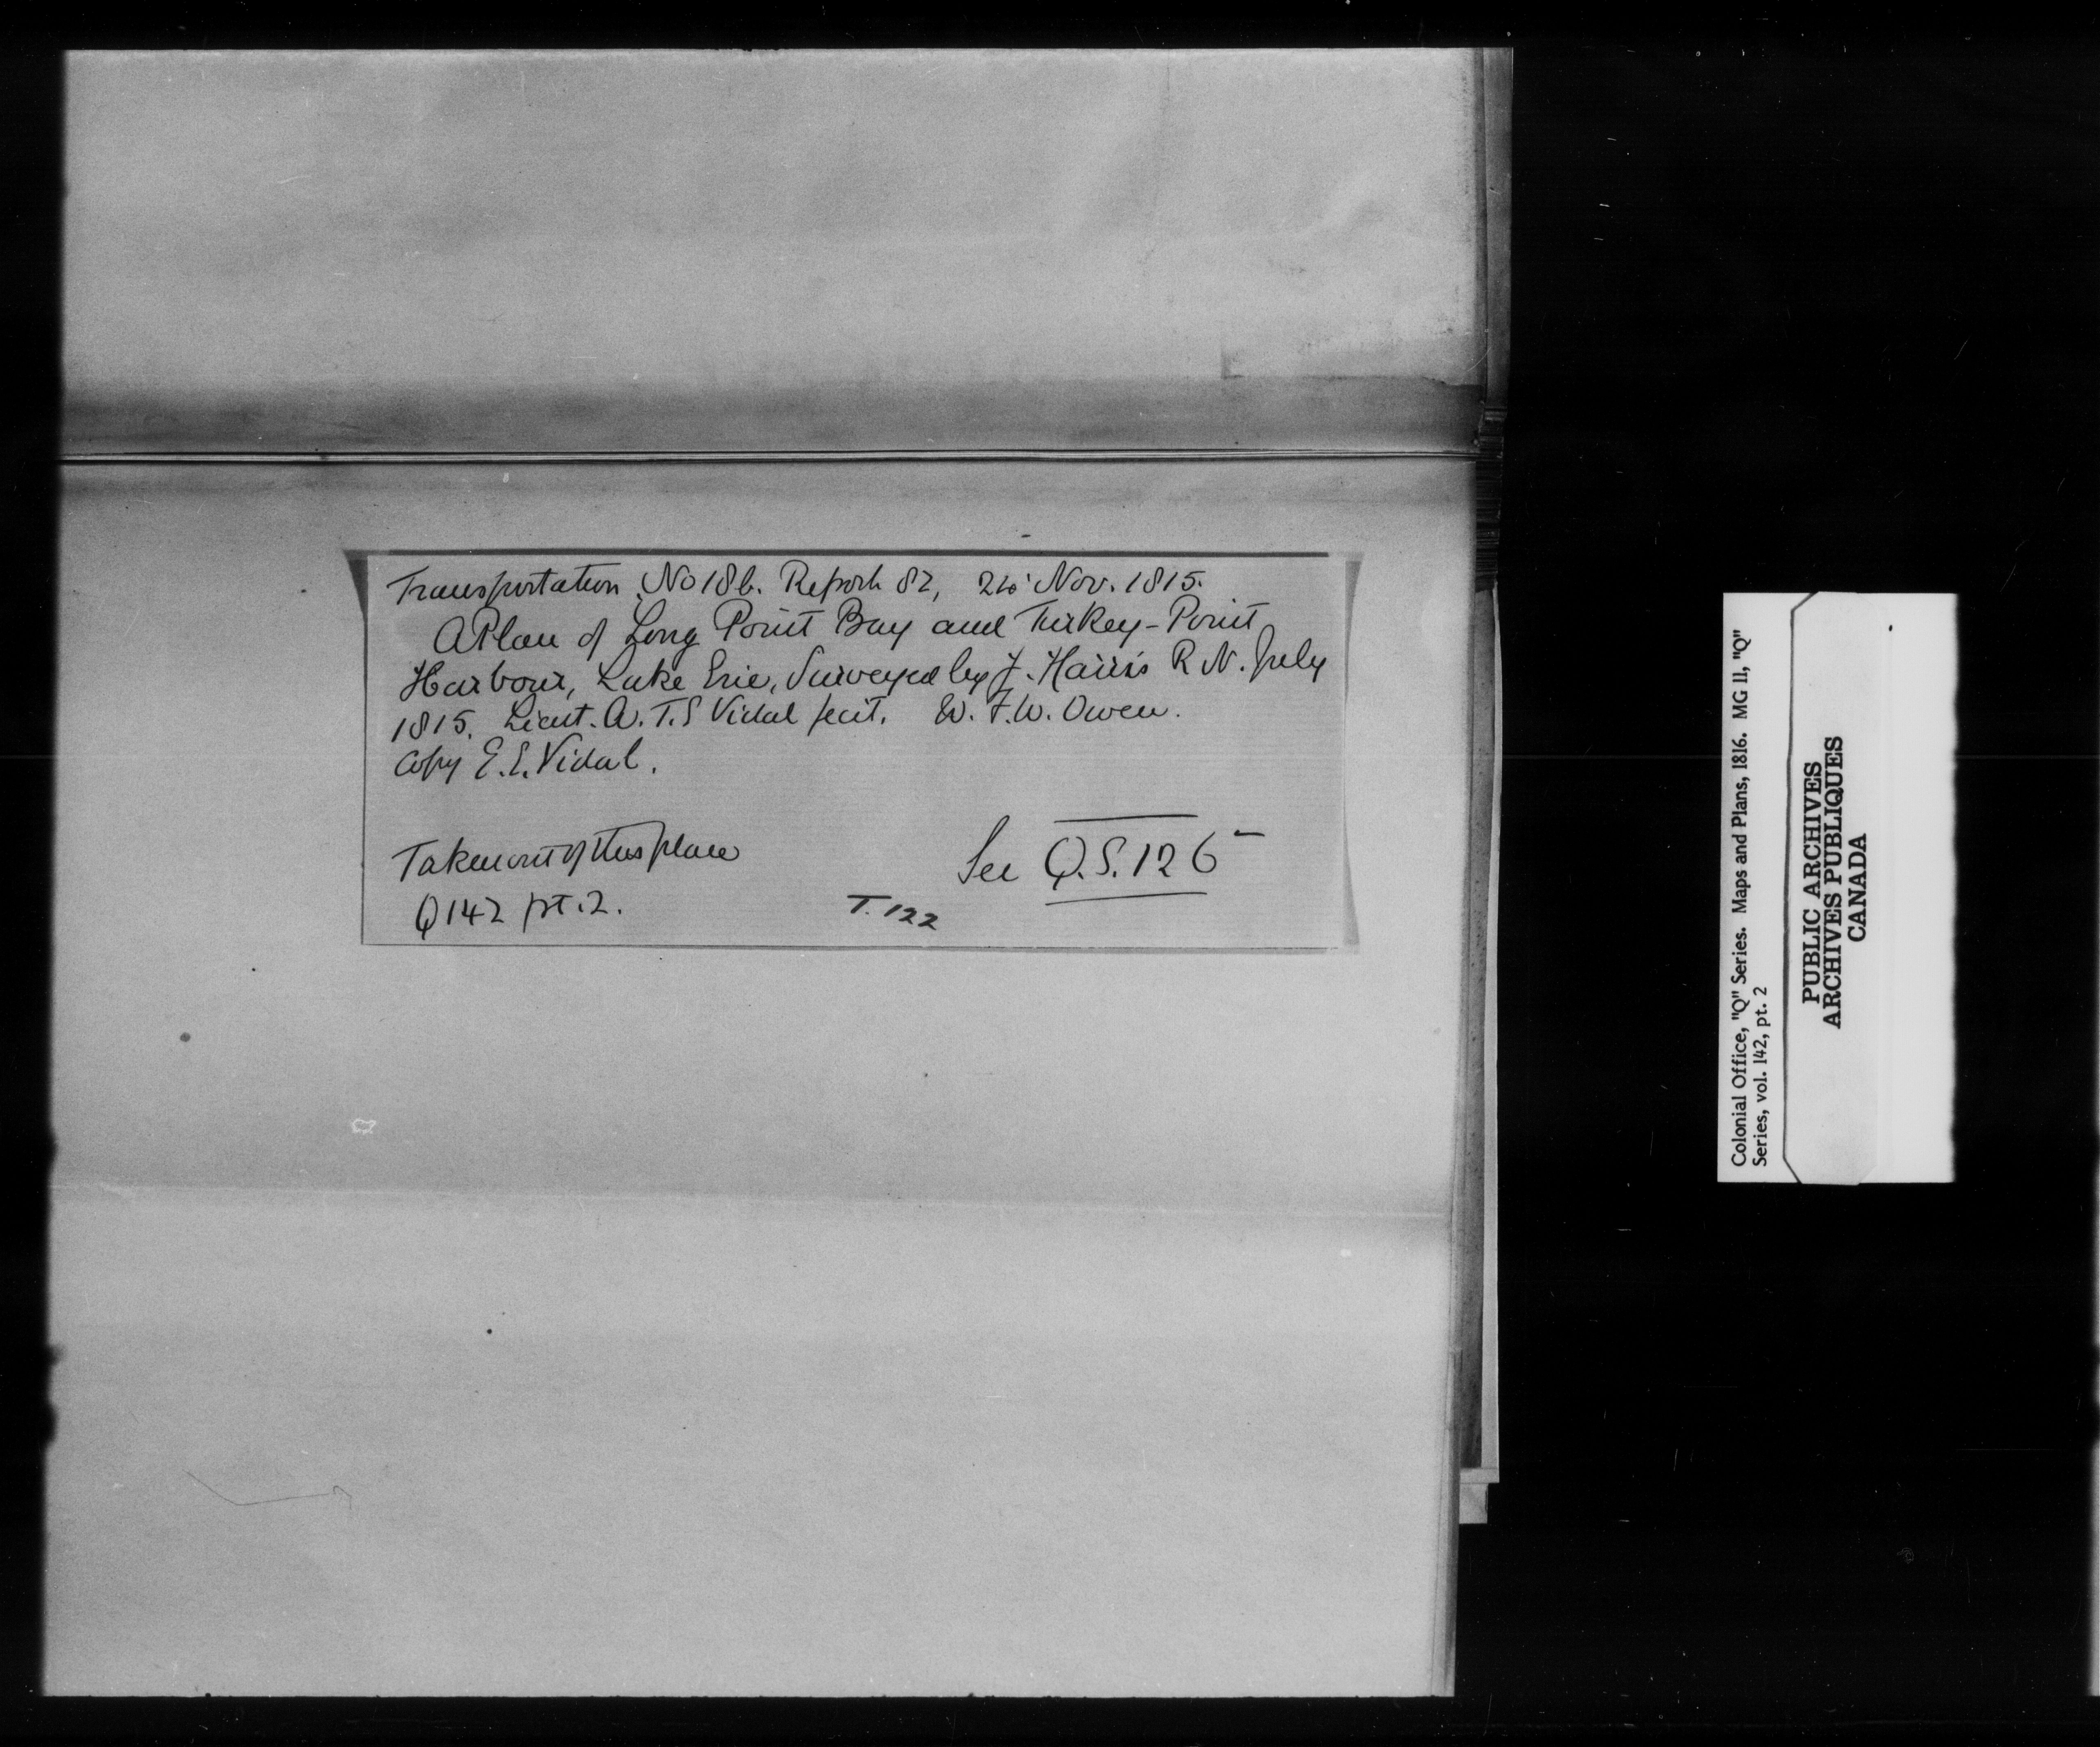 Transportation No 18 b. Report 82, Nov. 1815.
A Plan of Long Point Bay and Turkey-Point
Harbour, Lake Erie, Surveyed by J. Harris R N. July
1815. Lieut. A. T. E Vidal fecit. W. F. W. Owen.
Copy E. E. Vidal.
Taken out of this place
Q 142 pt. 2.
See Q.S. 126
T. 122
Colonial Office, "Q" Series. Maps and Plans, 1816. MG 11, "Q"
Series, vol. 142, pt. 2
PUBLIC ARCHIVES
ARCHIVES PUBLIQUES
CANADA